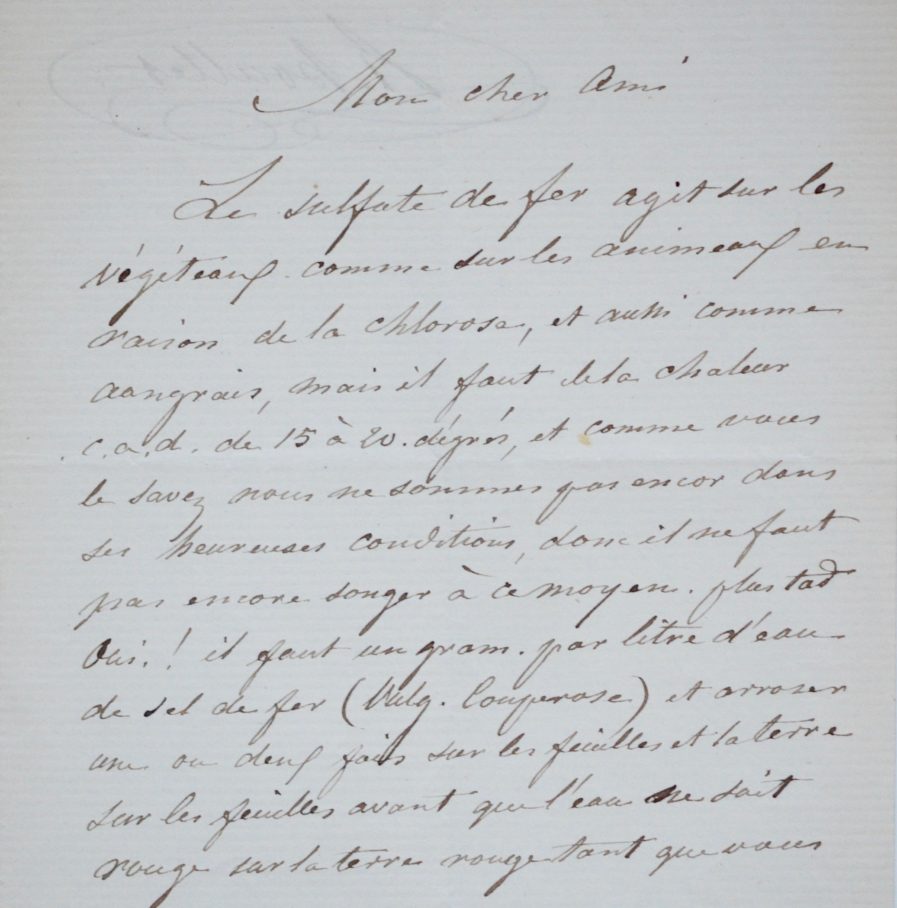 Mon cher Ami
Le sulfate de fer agit sur les
végéteaux comme sur les animeaux en
raison de la chlorose, et aussi comme
aangrais, mais il faut de la chaleur
c.a.d. de 15 à 20. dégrés, et comme vous
le savez nous ne sommes pas encor dans
ses heureuses conditions, donc il ne faut
pas encore songer à ce moyen. plus tad
Oui.! il faut un gram. par litre d'eau
de sel de fer (Vulg. Couperose) et arroser
une ou deux fois sur les feuilles et la terre
sur les feuilles avant que l'eau ne soit
rouge sur la terre rouge tant que vous